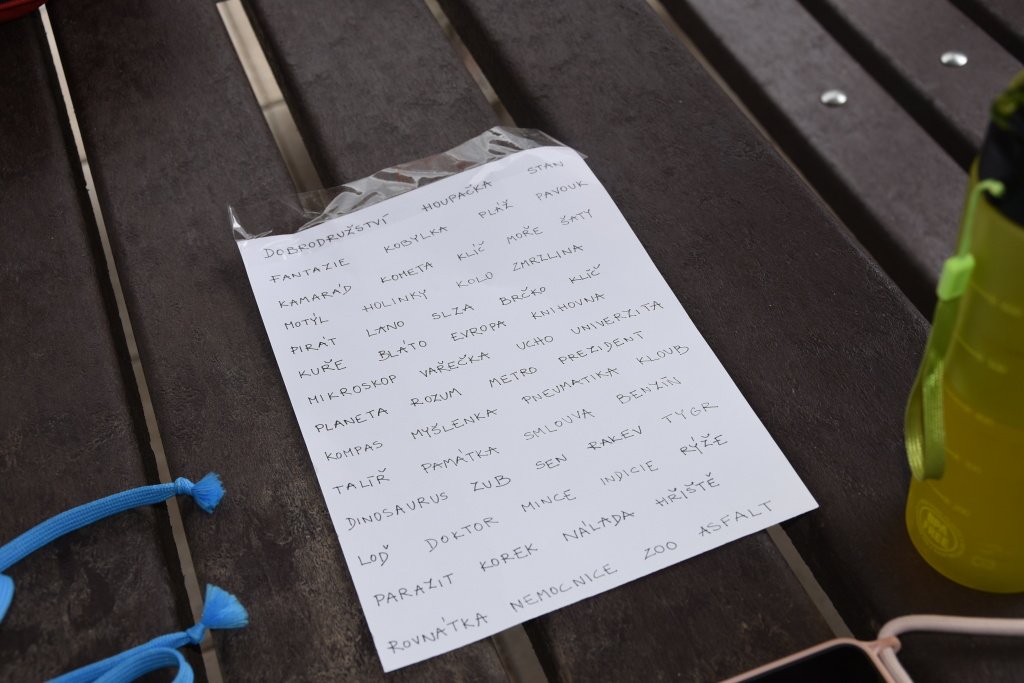 DOBRODRUŽSTVÍ HOUPAČKA STAN
FANTAZIE KOBYLKA PLÁŽ PAVOUK
KAMARÁD KOMETA KLÍČ MOŘE ŠATY
MOTÝL HOLINKY KOLO ZMRZLINA
PIRÁT LANO SLZA BRČKO KLÍČ
KUŘE BLÁTO EVROPA KNIHOVNA
MIKROSKOP VAŘEČKA UCHO UNIVERZITA
PLANETA ROZUM METRO PREZIDENT
KOMPAS MYŠLENKA PNEUMATIKA KLOUB
TALÍŘ PAMÁTKA SMLOUVA BENZÍN
DINOSAURUS ZUB SEN RAKEV TYGR
LOĎ DOKTOR MINCE INDICIE RÝŽE
PARAZIT KOREK NÁLADA HŘIŠTĚ
ROVNÁTKA NEMOCNICE ZOO ASFALT